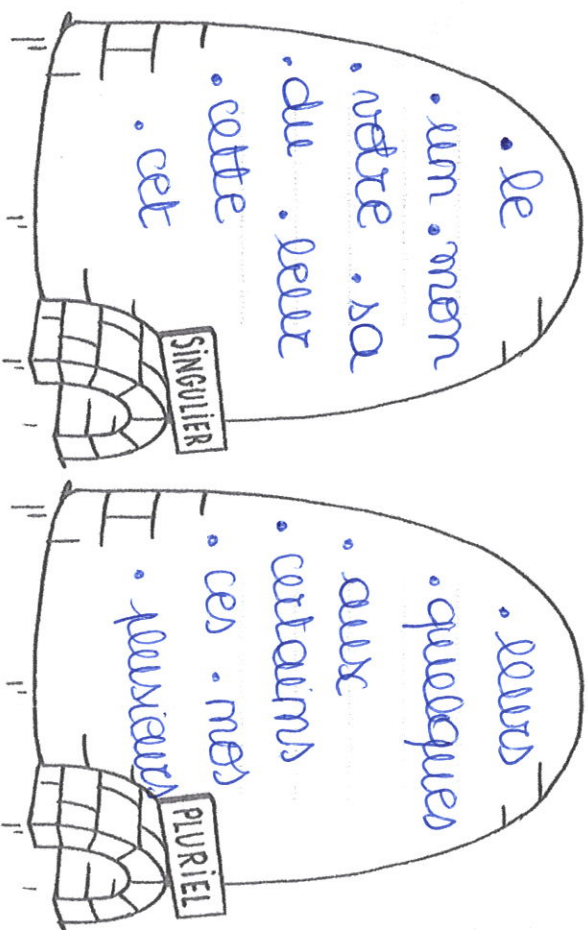 . le
. un . mon
. votre . sa
. du . leur
. cette
. cet
SINGULIER
. leurs
. quelques
. aux
. certains
. ces . nos
. plusieurs
PLURIEL